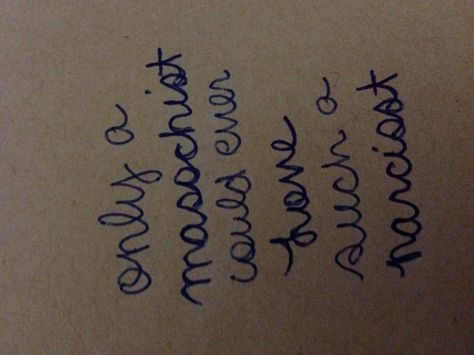 only a
masochist
could ever
love
such a
narcisst